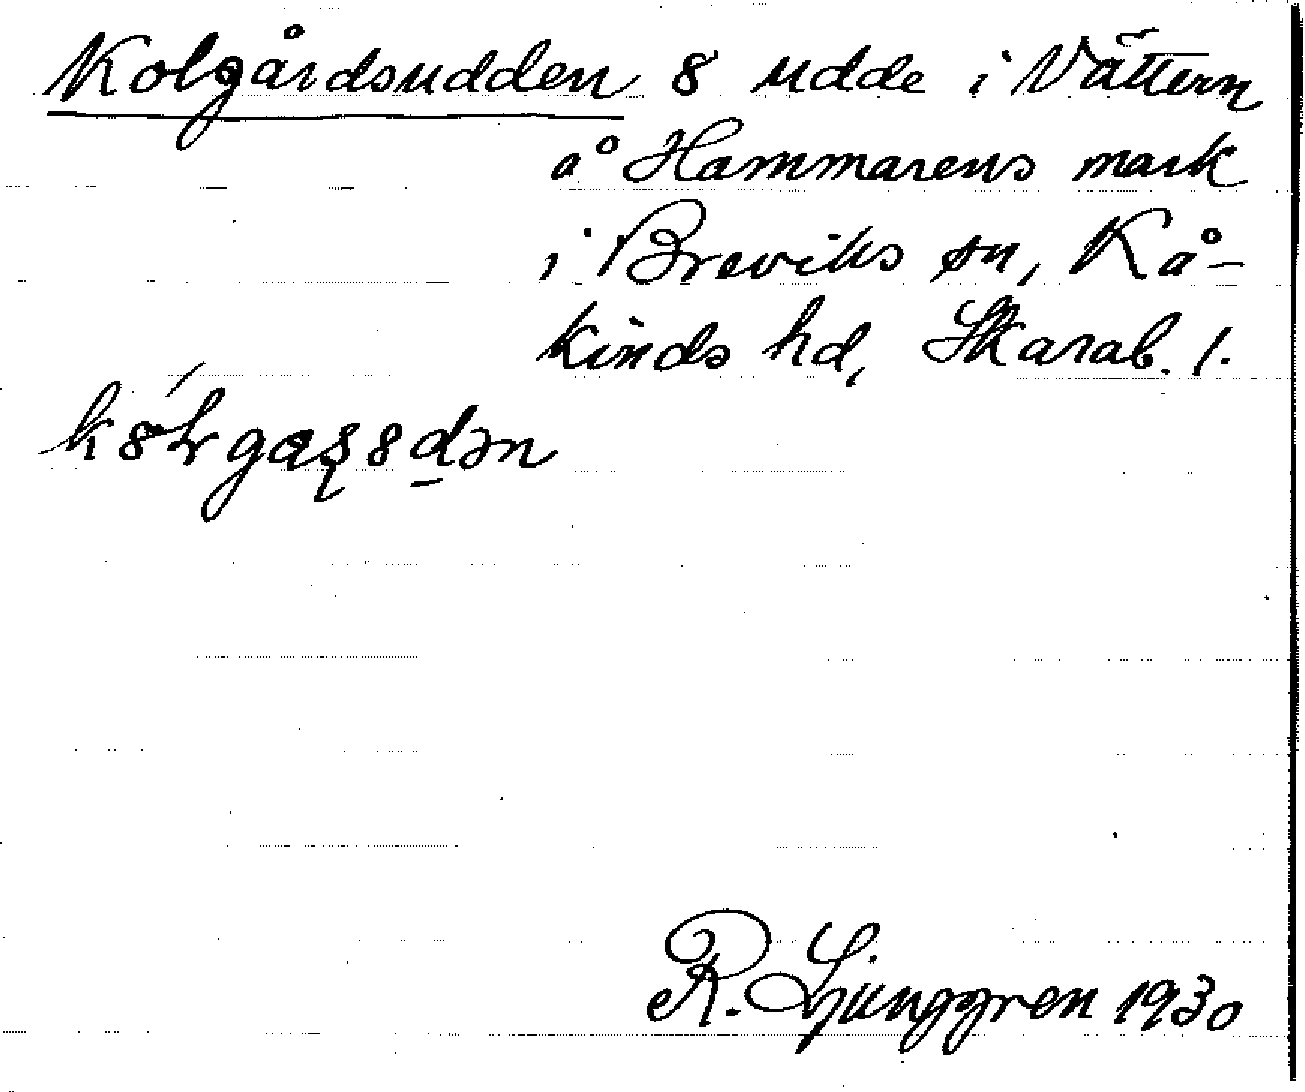 Kolgårdsudden 8 udde i Vättern
å Hammarens mark
i Breviks sn, Kå-
kinds hd, Skarab. l.
R. Ljunggren 1930